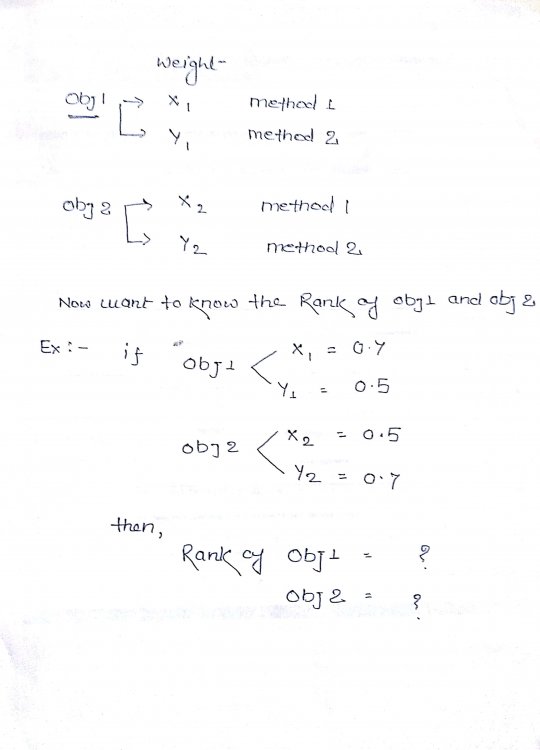 weight-
Obj 1 → X1 method 1
→ Y1 method 2
Obj 2 → X2 method 1
→ Y2 method 2
Now want to know the Rank of obj 1 and obj 2
Ex :- if obj 1 < X1 = 0.7
Y1 = 0.5
obj 2 < X2 = 0.5
Y2 = 0.7
then,
Rank of Obj 1 = ?
Obj 2 = ?